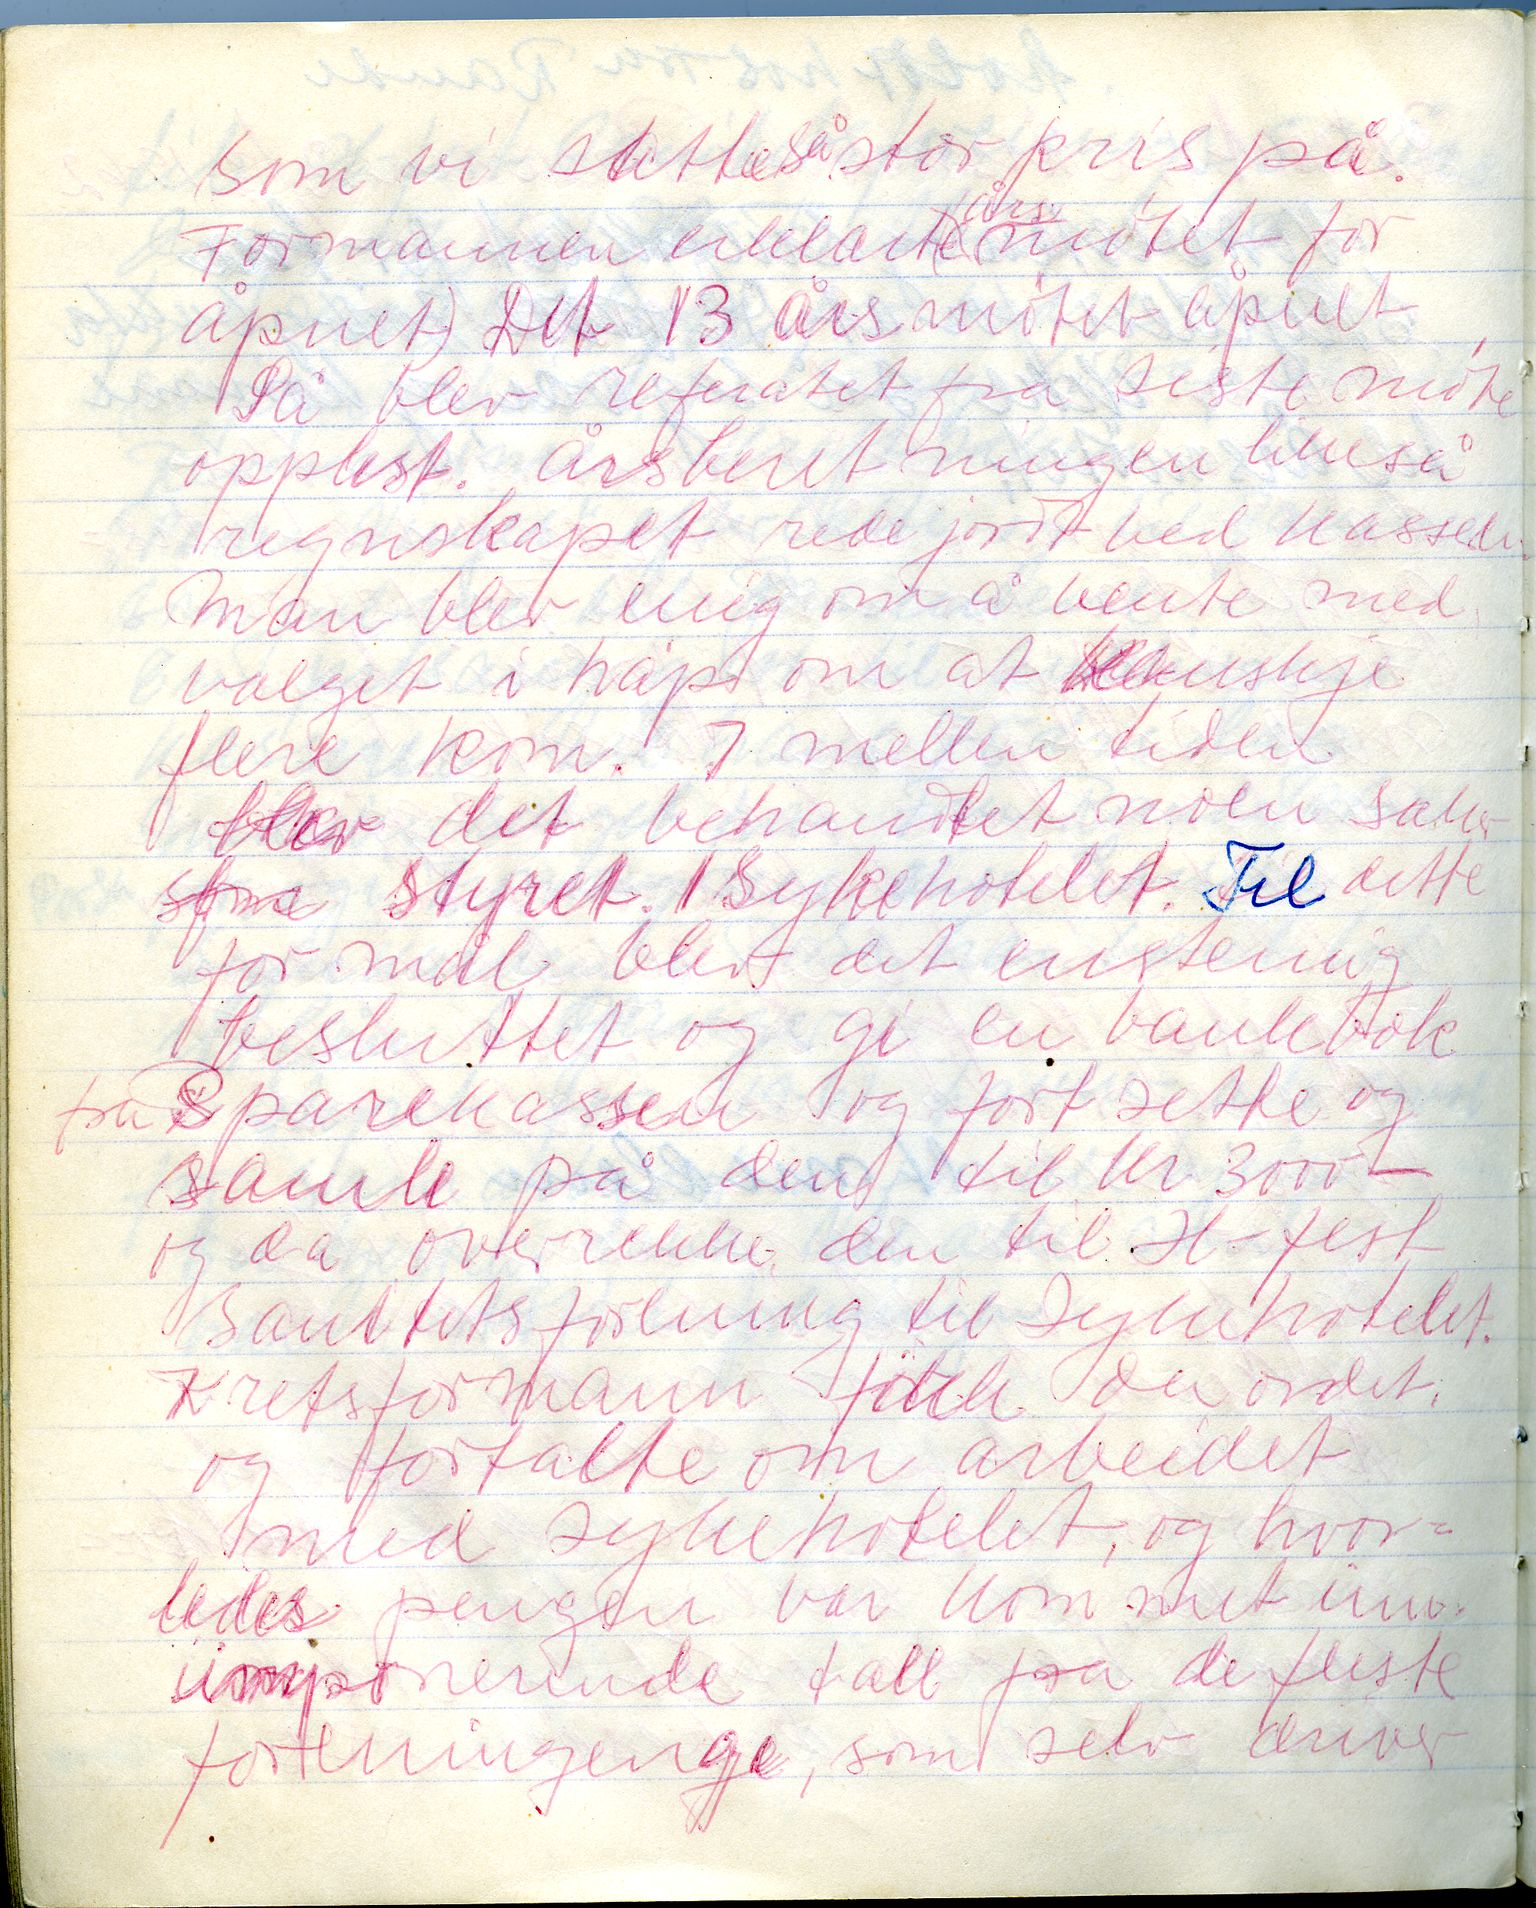 som vi satte så stor pris på.
Formannen erklærte (årsmøtet for
åpnet) Det 13 årsmøtet åpnet
Så blev referatet fra siste møte
opplest. årsberetningen likeså
regnskapet redejordt ved kasseder.
Man blev enig om å vente med
valget i håp om at kanskje
flere kom. I mellen tiden
blev det behandlet noen saker
fra styret. 1 Sykehotelet. Til dette
formål blev det enstemig
besluttet og gi en bankbok
fra Sparekassen og fortsette og
samle på den til kr 3000 —
og da overrekke den til H-fest
Sanitetsforening til Sykehotelet.
Kretsformann fikk da ordet.
og fortalte om arbeidet
med sykehotelet, og hvor=
ledes pengen var kommet inn.
imponerende tall fra de fleste
foreningenge, som selv driver